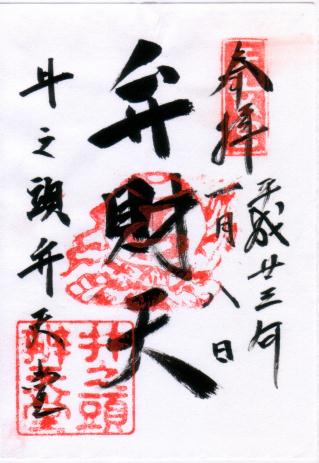 奉拝
平成廿三年
一月八日
弁財天
井之頭弁天堂
井之頭
弁財天